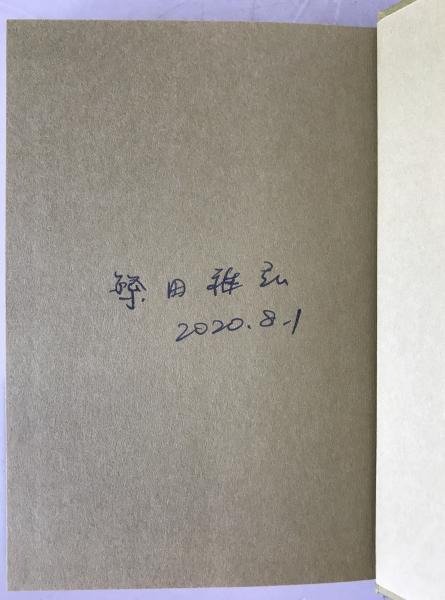 繁田雅弘
2020.8.1